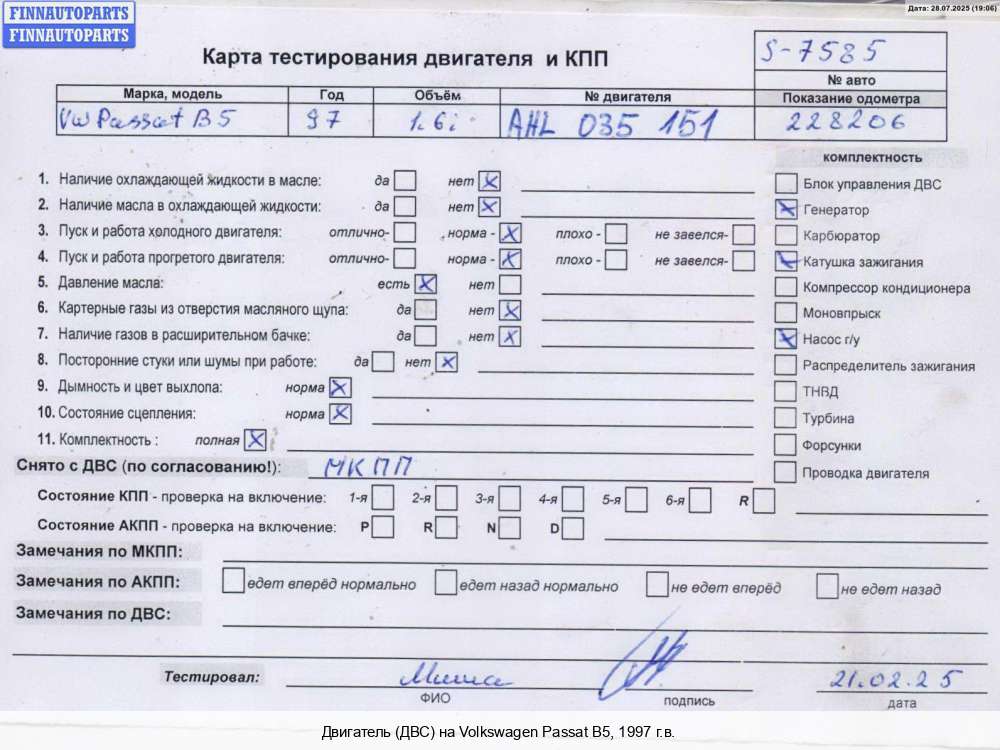 FINNAUTOPARTS
FINNAUTOPARTS
Дата: 28.07.2025 (19:06)
Карта тестирования двигателя и КПП
S-7585
№ авто
Марка, модель Год Объём № двигателя Показание одометра
VW Passat B5 97 1.6i AHL 035 151 228206
комплектность
1. Наличие охлаждающей жидкости в масле: да нет
Блок управления ДВС
2. Наличие масла в охлаждающей жидкости: да нет
Генератор
3. Пуск и работа холодного двигателя: отлично- норма - плохо - не завелся-
Карбюратор
4. Пуск и работа прогретого двигателя: отлично- норма - плохо - не завелся-
Катушка зажигания
5. Давление масла: есть нет
Компрессор кондиционера
6. Картерные газы из отверстия масляного щупа: да нет
Моновпрыск
7. Наличие газов в расширительном бачке: да нет
Насос г/у
8. Посторонние стуки или шумы при работе: да нет
Распределитель зажигания
9. Дымность и цвет выхлопа: норма
ТНВД
10. Состояние сцепления: норма
Турбина
11. Комплектность : полная
Форсунки
Снято с ДВС (по согласованию!): МКПП
Проводка двигателя
Состояние КПП - проверка на включение: 1-я 2-я 3-я 4-я 5-я 6-я R
Состояние АКПП - проверка на включение: P R N D
Замечания по МКПП:
Замечания по АКПП: едет вперёд нормально едет назад нормально не едет вперёд не едет назад
Замечания по ДВС:
Тестировал: Миша 21.02.25
ФИО подпись дата
Двигатель (ДВС) на Volkswagen Passat B5, 1997 г.в.